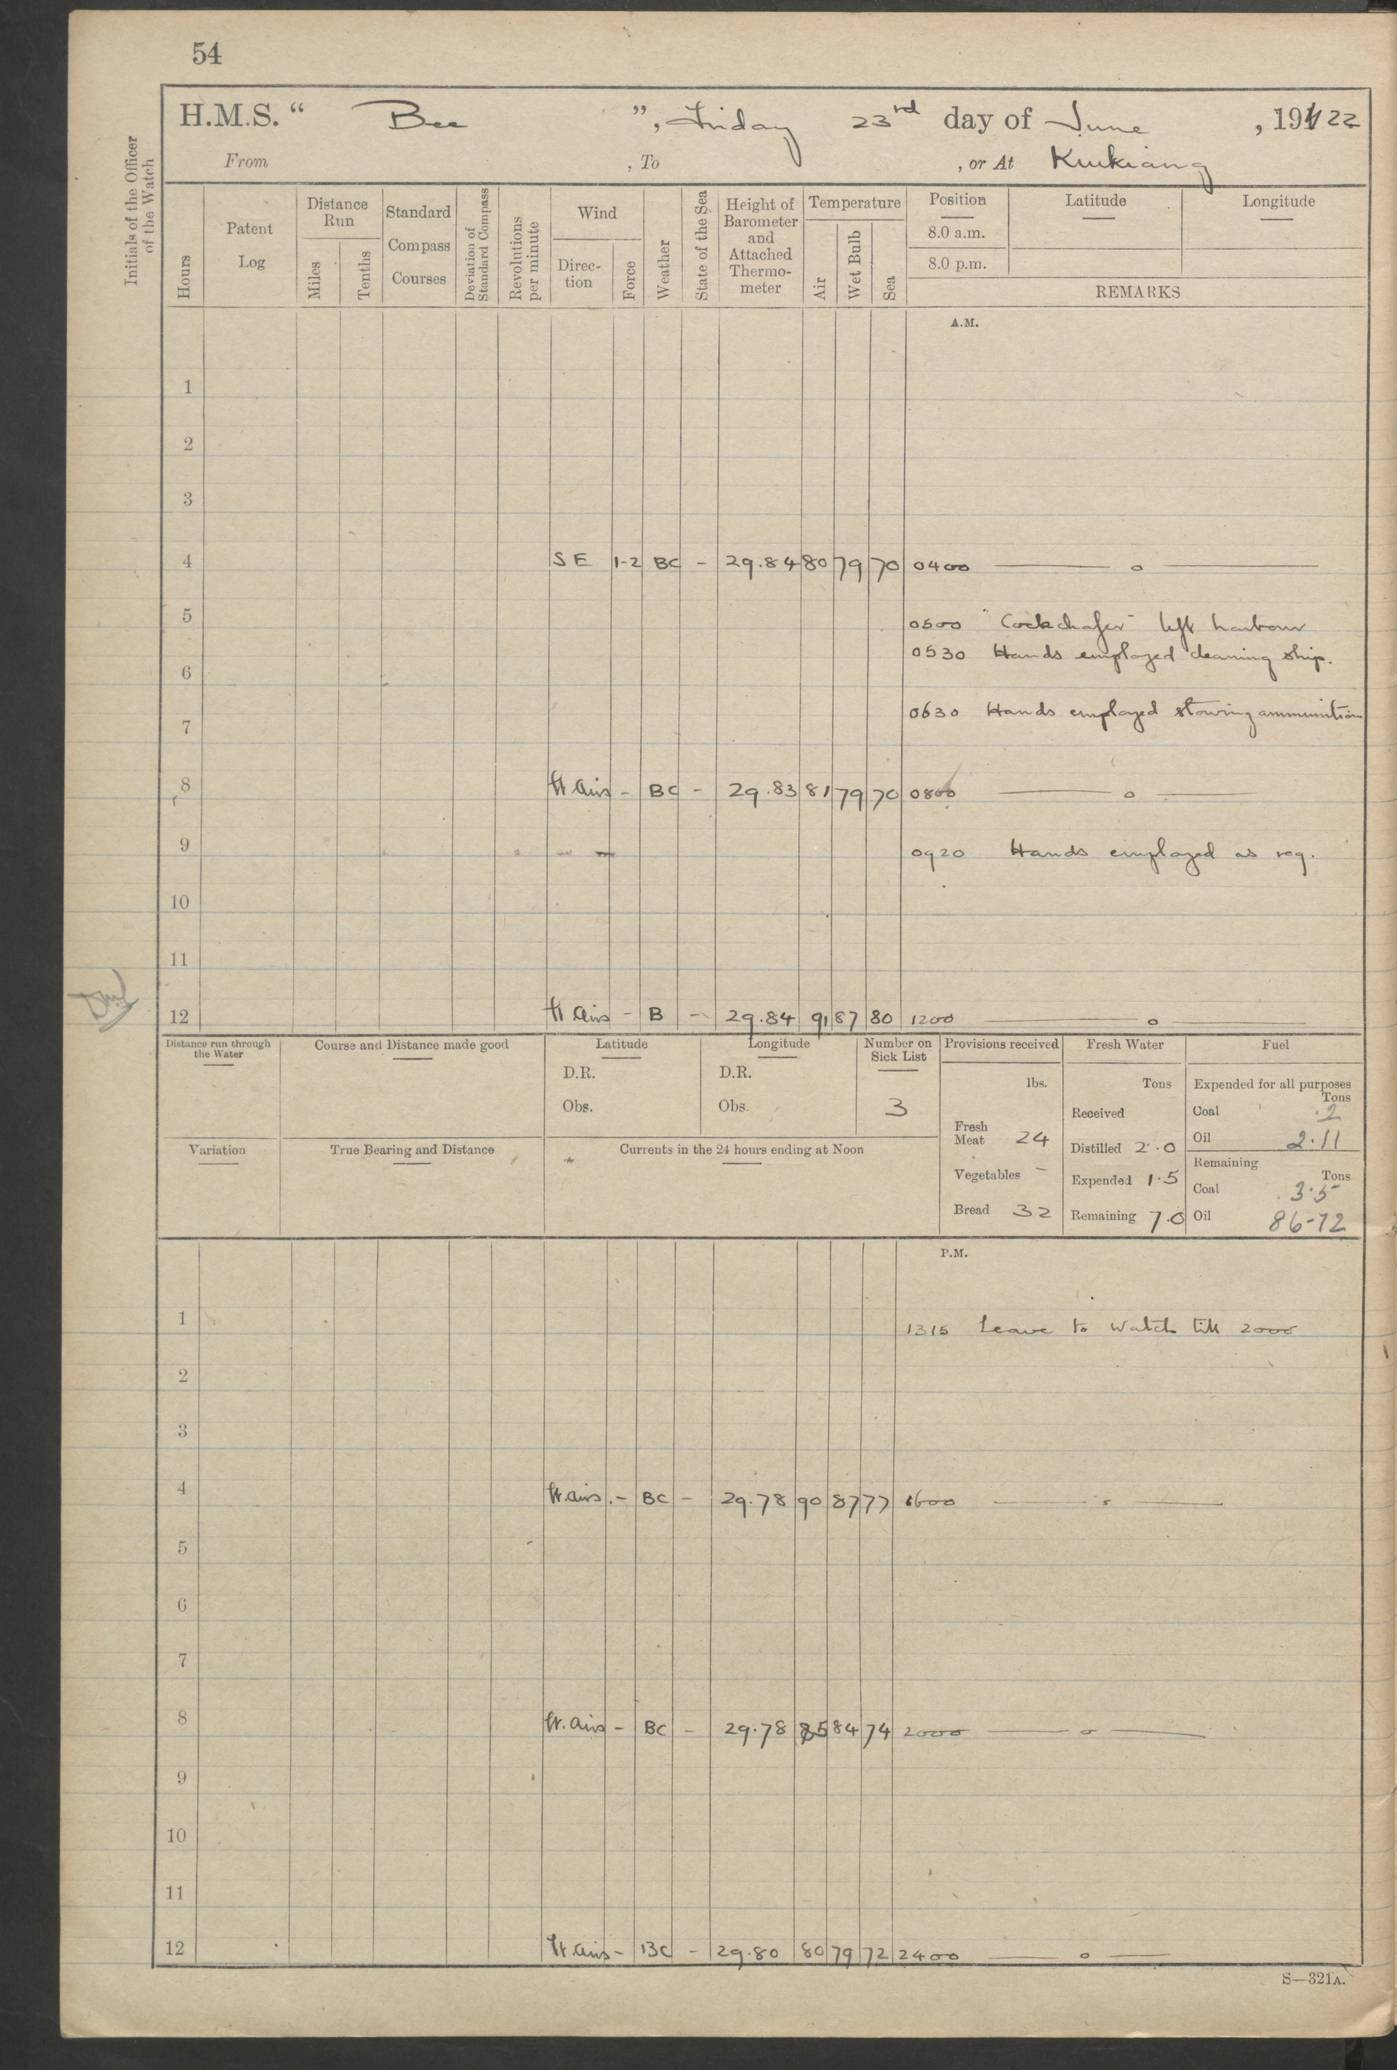 54
H.M.S. “ Bee ”, Friday 23rd day of June , 19122
From , To , or At Kiukiang
Initials of the Officer of the Watch
Hours
Patent Log
Distance Run
Miles
Tenths
Standard Compass Courses
Deviation of Standard Compass
Revolutions per minute
Wind
Direction
Force
Weather
State of the Sea
Height of Barometer and Attached Thermometer
Temperature
Air
Wet Bulb
Sea
Position
8.0 a.m.
8.0 p.m.
Latitude
Longitude
REMARKS
A.M.
1
2
3
4 SE 1-2 BC - 29.84 80 79 70 0400 — o —
5 0500 "Cockchafer" left harbour
0530 Hands employed cleaning ship.
6
0630 Hands employed stowing ammunition
7
8 Lt Airs - BC - 29.83 81 79 70 0800 — o —
9 0920 Hands employed as req.
10
11
12 Lt Airs - B - 29.84 91 87 80 1200 — o —
Distance run through the Water
Course and Distance made good
Latitude
D.R.
Obs.
Longitude
D.R.
Obs.
Number on Sick List
3
Provisions received
lbs.
Fresh Meat 24
Vegetables -
Bread 32
Fresh Water
Tons
Received
Distilled 2.0
Expended 1.5
Remaining 7.0
Fuel
Expended for all purposes
Tons
Coal .2
Oil 2.11
Remaining
Tons
Coal 3.5
Oil 86-72
Variation
True Bearing and Distance
Currents in the 24 hours ending at Noon
P.M.
1 1315 Leave to Watch till 2000
2
3
4 Lt. airs. - BC - 29.78 90 87 77 1600 — o —
5
6
7
8 Lt. airs - BC - 29.78 85 84 74 2000 — o —
9
10
11
12 Lt. airs - BC - 29.80 80 79 72 2400 — o —
S—321A.